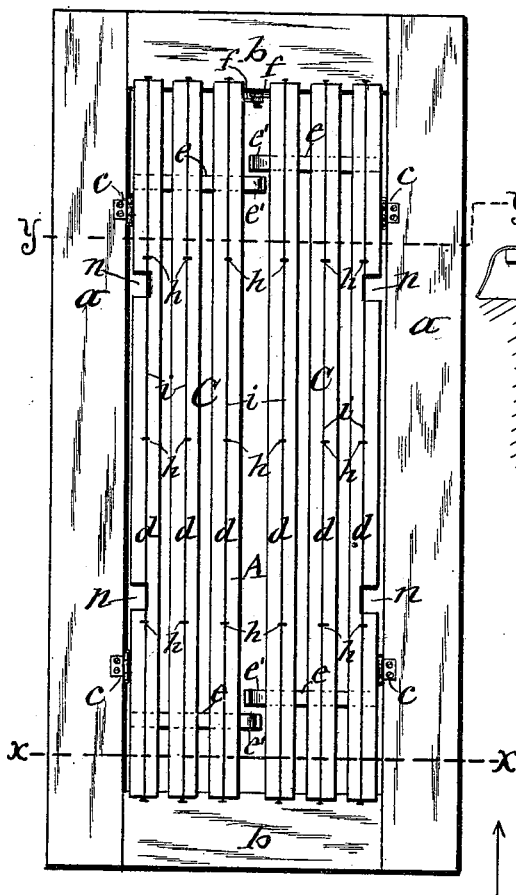 b
f f
e' e
e
e'
c c
y y
n h h h h n
a a
i C i C i
h h h h
d d d d d d
A
n n
h h h h
e' e
c c
e
e'
x x
b